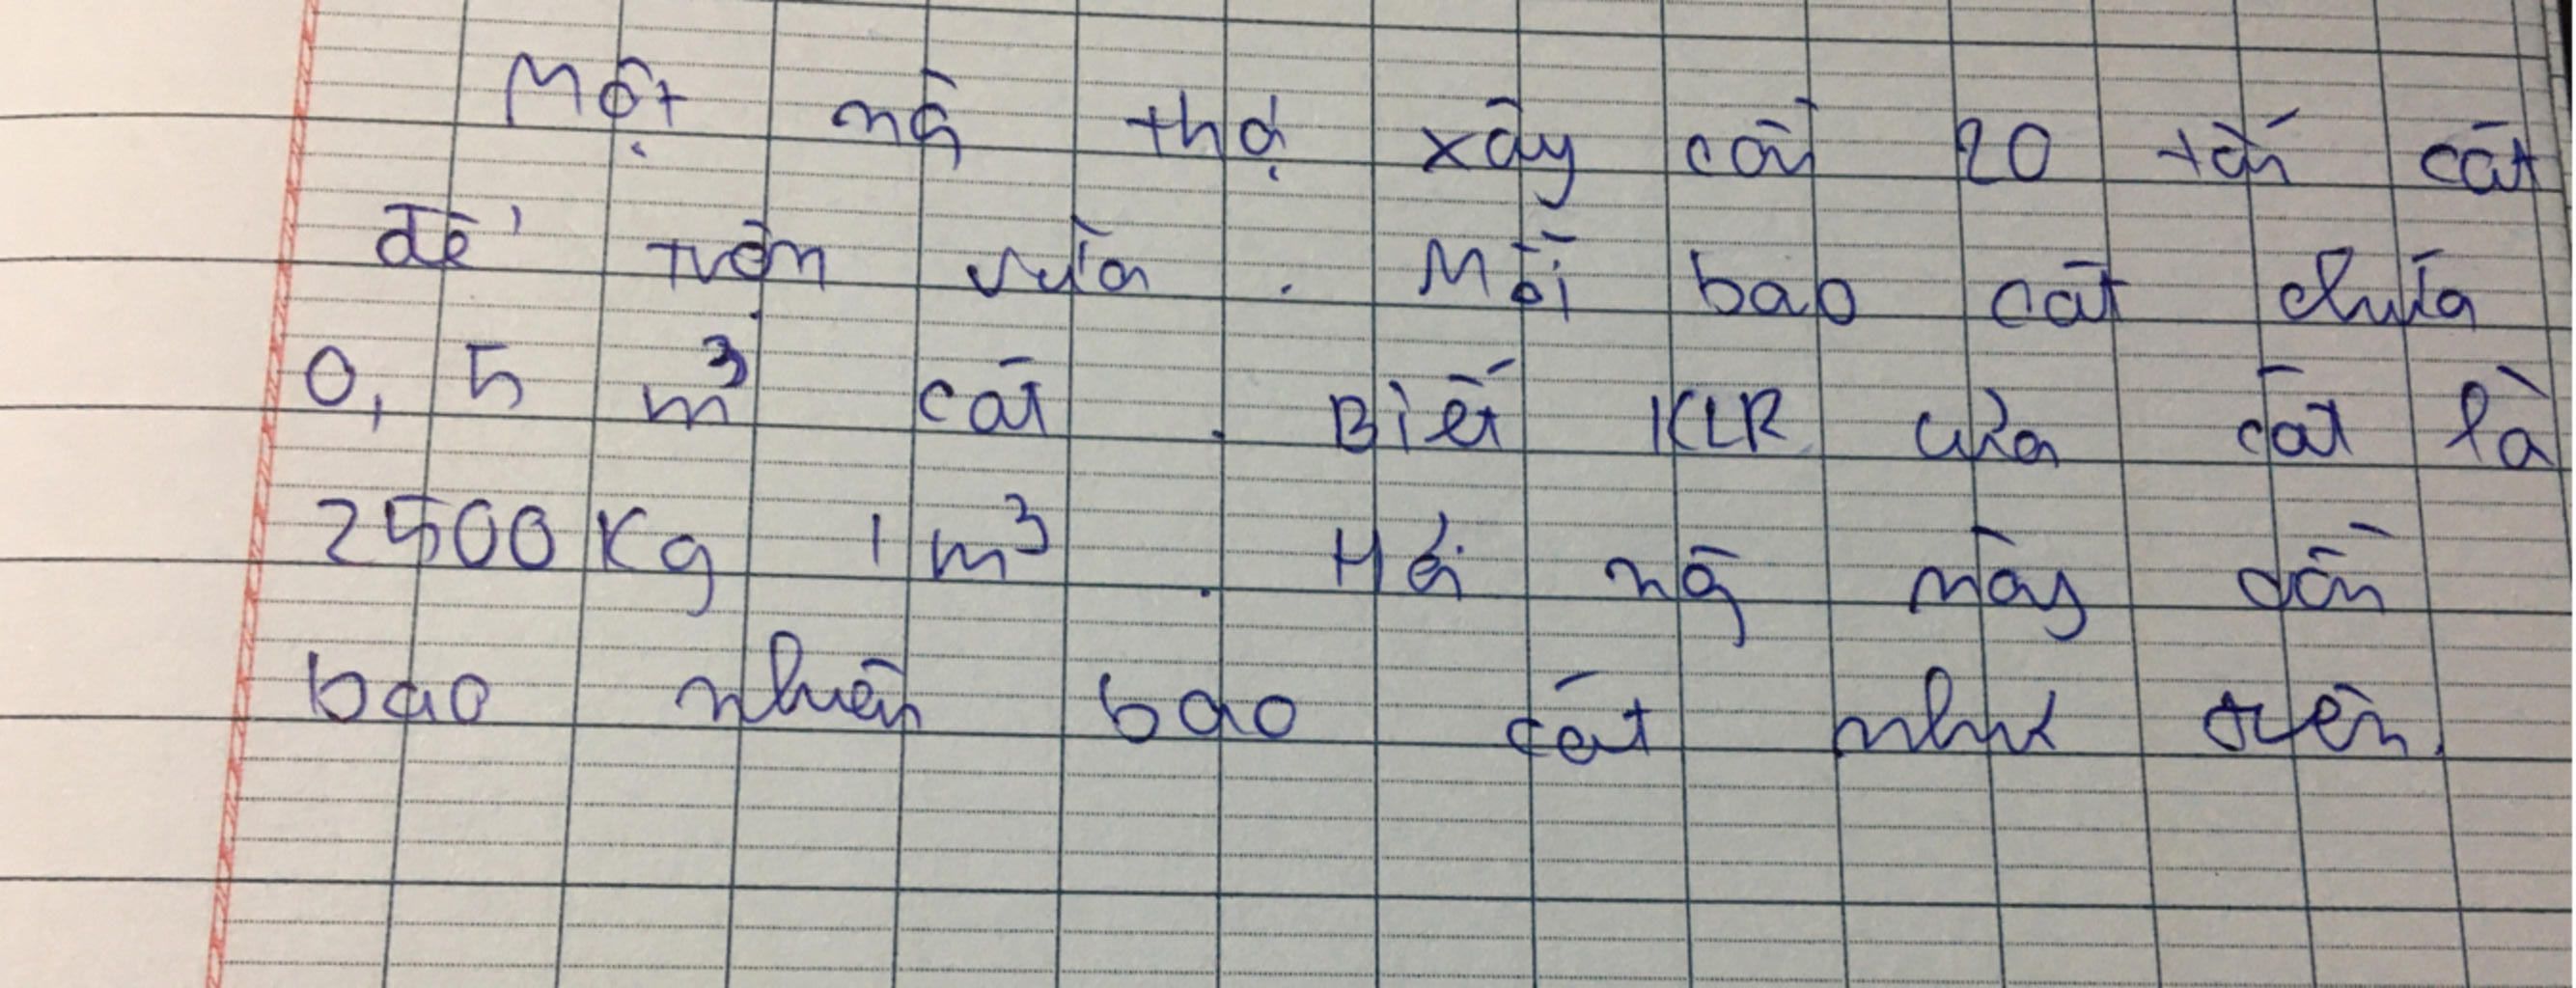 Một ng thợ xây cần 20 tấn cát
để trộn vữa . Mỗi bao cát chứa
0,5 m³ cát . Biết KLR của cát là
2500 Kg / m³ . Hỏi ng này cần
bao nhiêu bao cát như trên.